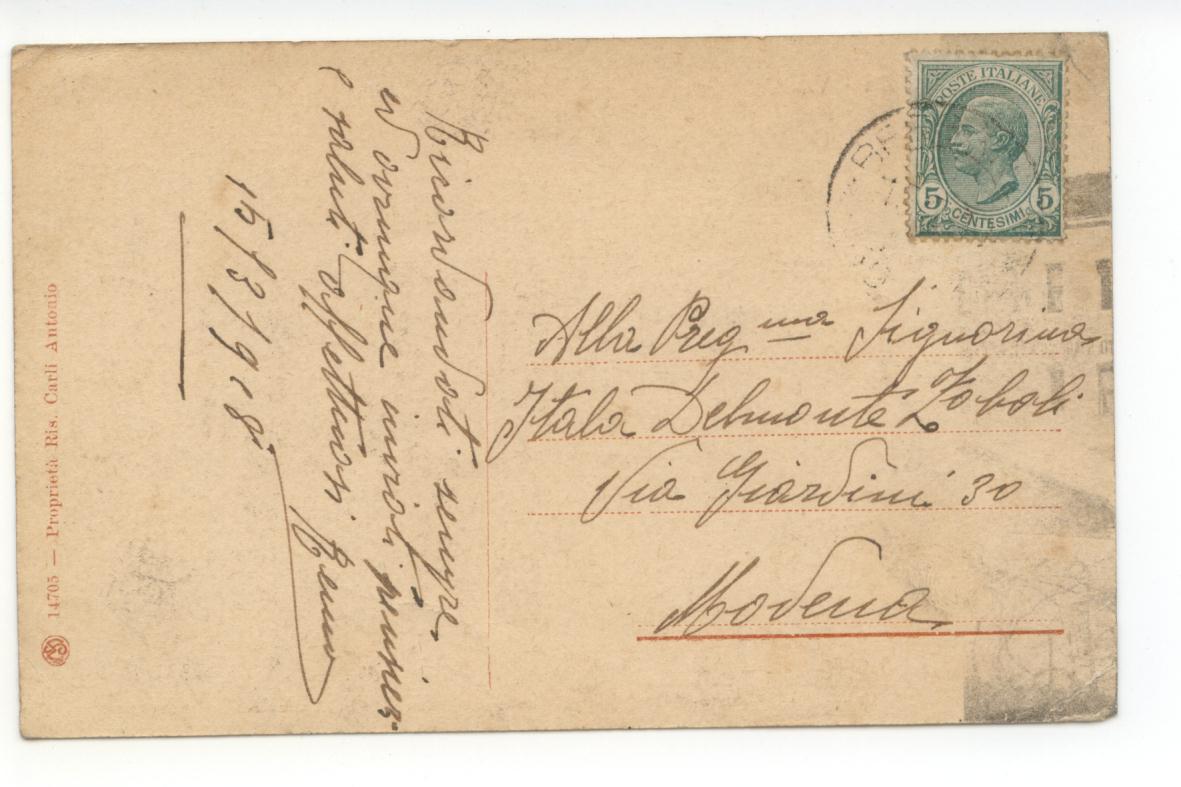 Ricordandoti sempre,
ed ovunque invioti pensier
e saluti affettuosi
Remo
15/3/1918
Alla Preg ma Signorina
Itala Delmonte Zoboli
Via Giardini 30
Modena
POSTE ITALIANE
5 CENTESIMI 5
14705 — Proprietà Ris. Carli Antonio